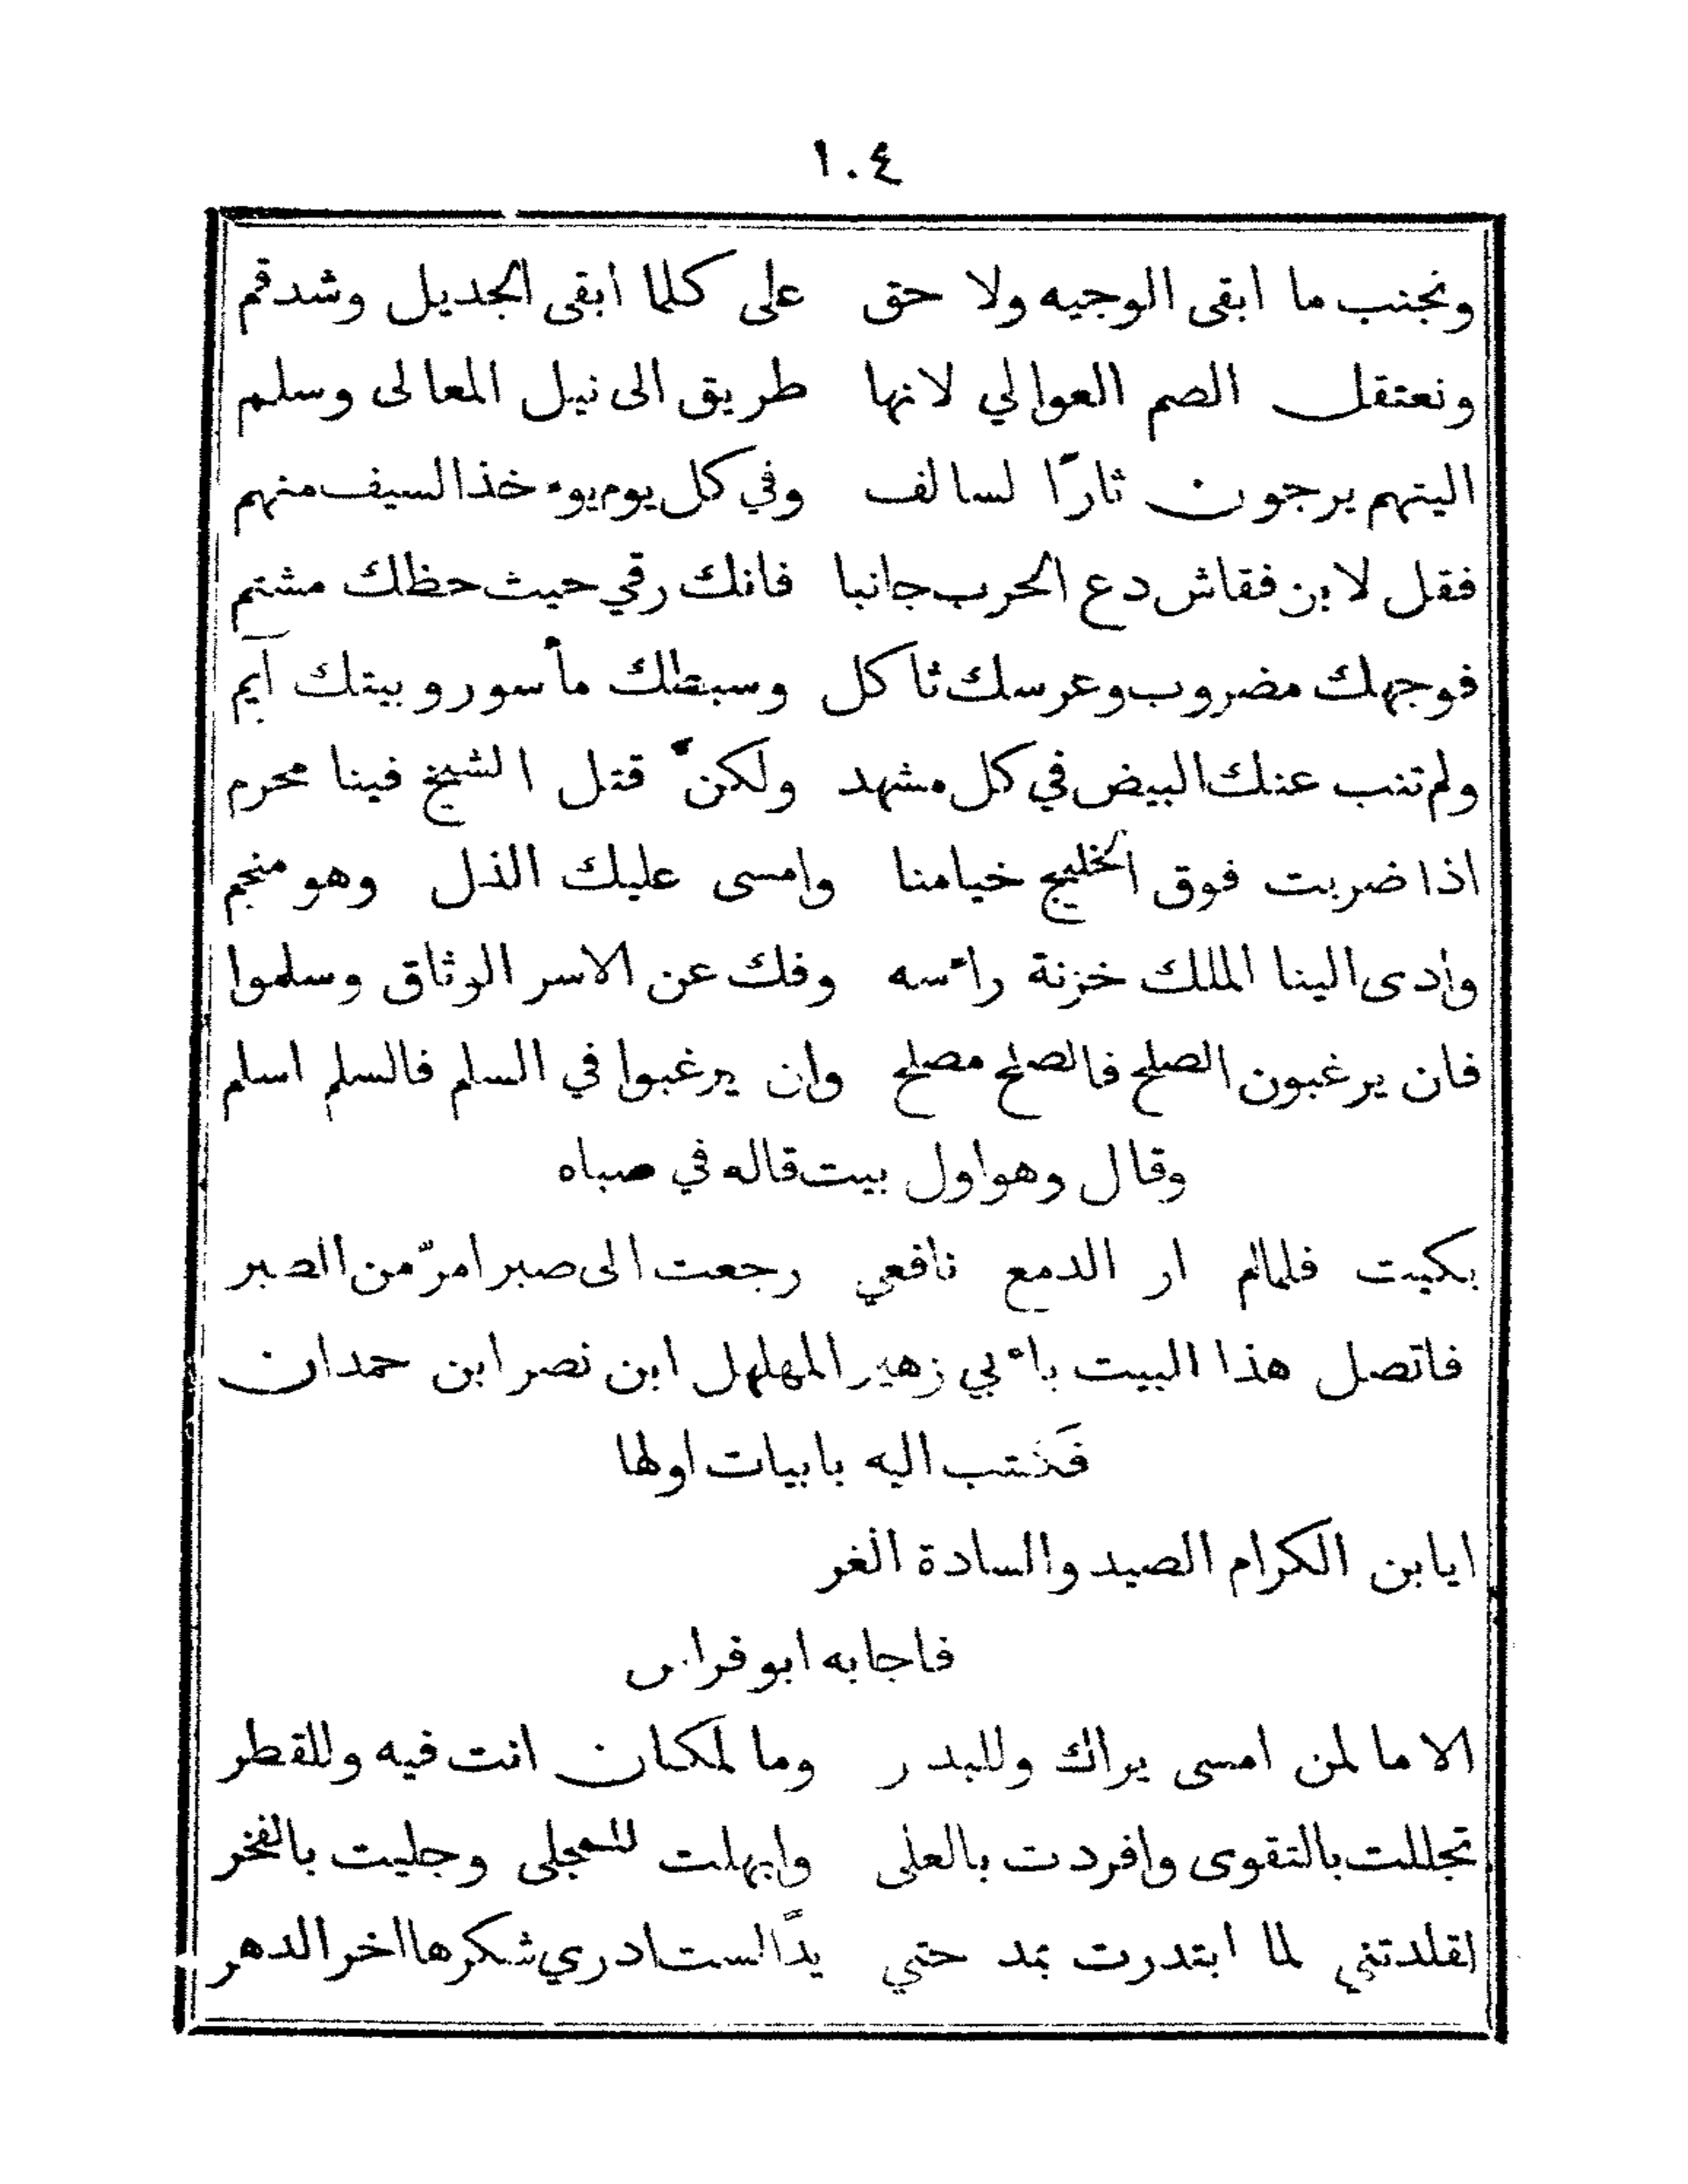 ١٠٤
ونجنب ما ابقى الوجيه ولا حق على كلما ابقى الجديل وشدقم
ونعتقل الصم العوالي لانها طريق الى نيل المعالى وسلم
اليتهم يرجون ثارًا لسالف وفي كل يوم يوءخذ السيف منهم
فقل لابن فقاش دع الحرب جانبا فانك رقي حيث حظك مشتم
فوجهك مضروب وعرسك ثاكل وسبطك مأسور وبيتك آيم
ولم تنب عنك البيض في كل مشهد ولكن قتل الشيخ فينا محرم
اذا ضربت فوق الخليج خيامنا وامسى عليك الذل وهو منجم
وادى الينا الملك خزنة راءسه وفك عن الاسر الوثاق وسلموا
فان يرغبون الصلح فالصلح مصلح وان يرغبوا في السلم فالسلم اسلم
وقال وهو اول بيت قاله في صباه
بكيت فلما لم ار الدمع نافعي رجعت الى صبر امرّ من الصبر
فاتصل هذا البيت باءبي زهير المهلهل ابن نصر ابن حمدان
فكتب اليه بابيات اولها
ايابن الكرام الصيد والسادة الغر
فاجابه ابو فراس
الا ما لمن امسى يراك وللبدر وما لمكان انت فيه وللقطر
تجللت بالتقوى وافردت بالعلى وابهلت للمجلى وجليت بالفخر
لقلدتني لما ابتدرت بمد حتي يدًا لست ادري شكرها اخر الدهر